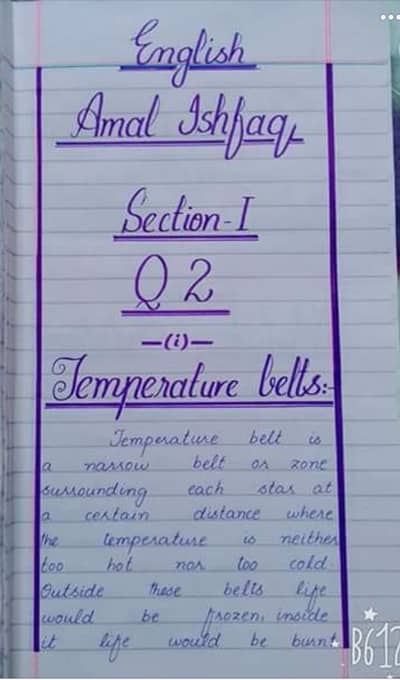 English
Amal Ishfaq
Section-I
Q 2
—(i)—
Temperature belts:-
Temperature belt is
a narrow belt or zone
surrounding each star at
a certain distance where
the temperature is neither
too hot nor too cold.
Outside these belts life
would be frozen, inside
it life would be burnt
B612